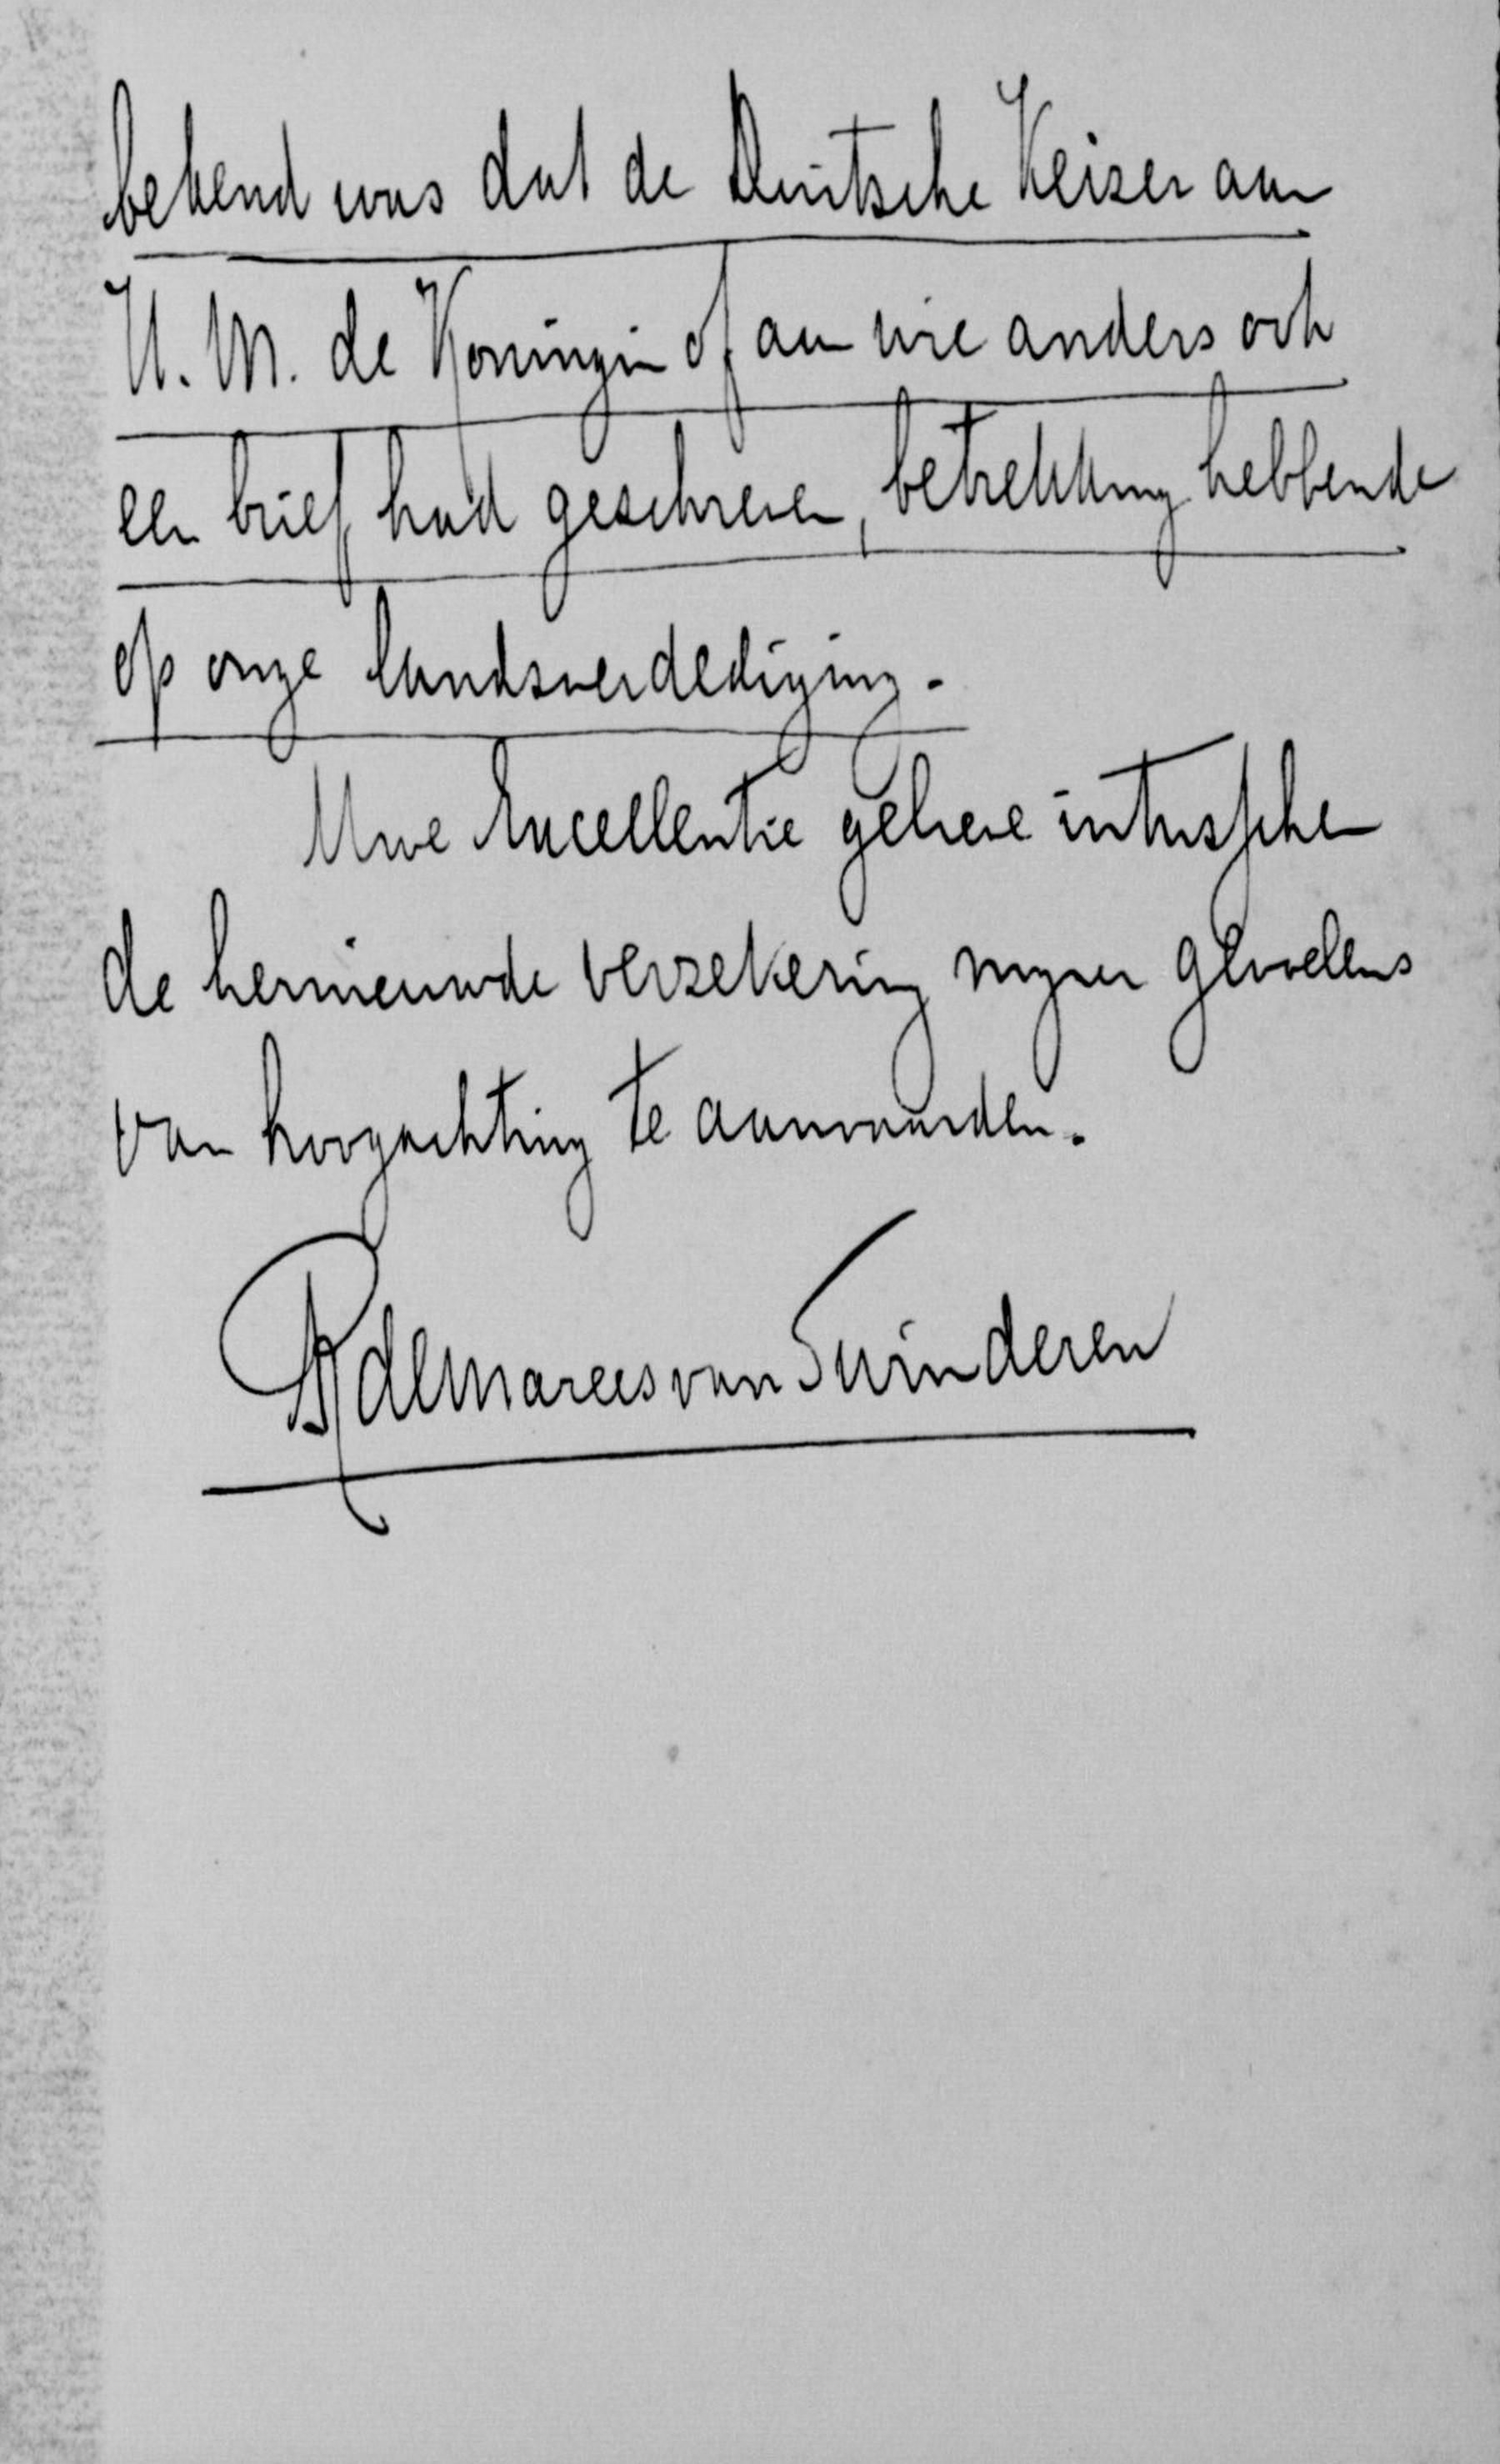 bekend was dat de Duitsche Keizer aan
H. M. de Koningin of aan wie anders ook
een brief had geschreven, betrekking hebbende
op onze landsverdediging.
Uwe Excellentie gelieve intusschen
de hernieuwde verzekering mijner gevoelens
van hoogachting te aanvaarden.
R de Marees van Swinderen